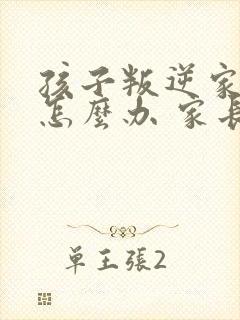 孩子叛逆家
怎麼办 家長
单王張2